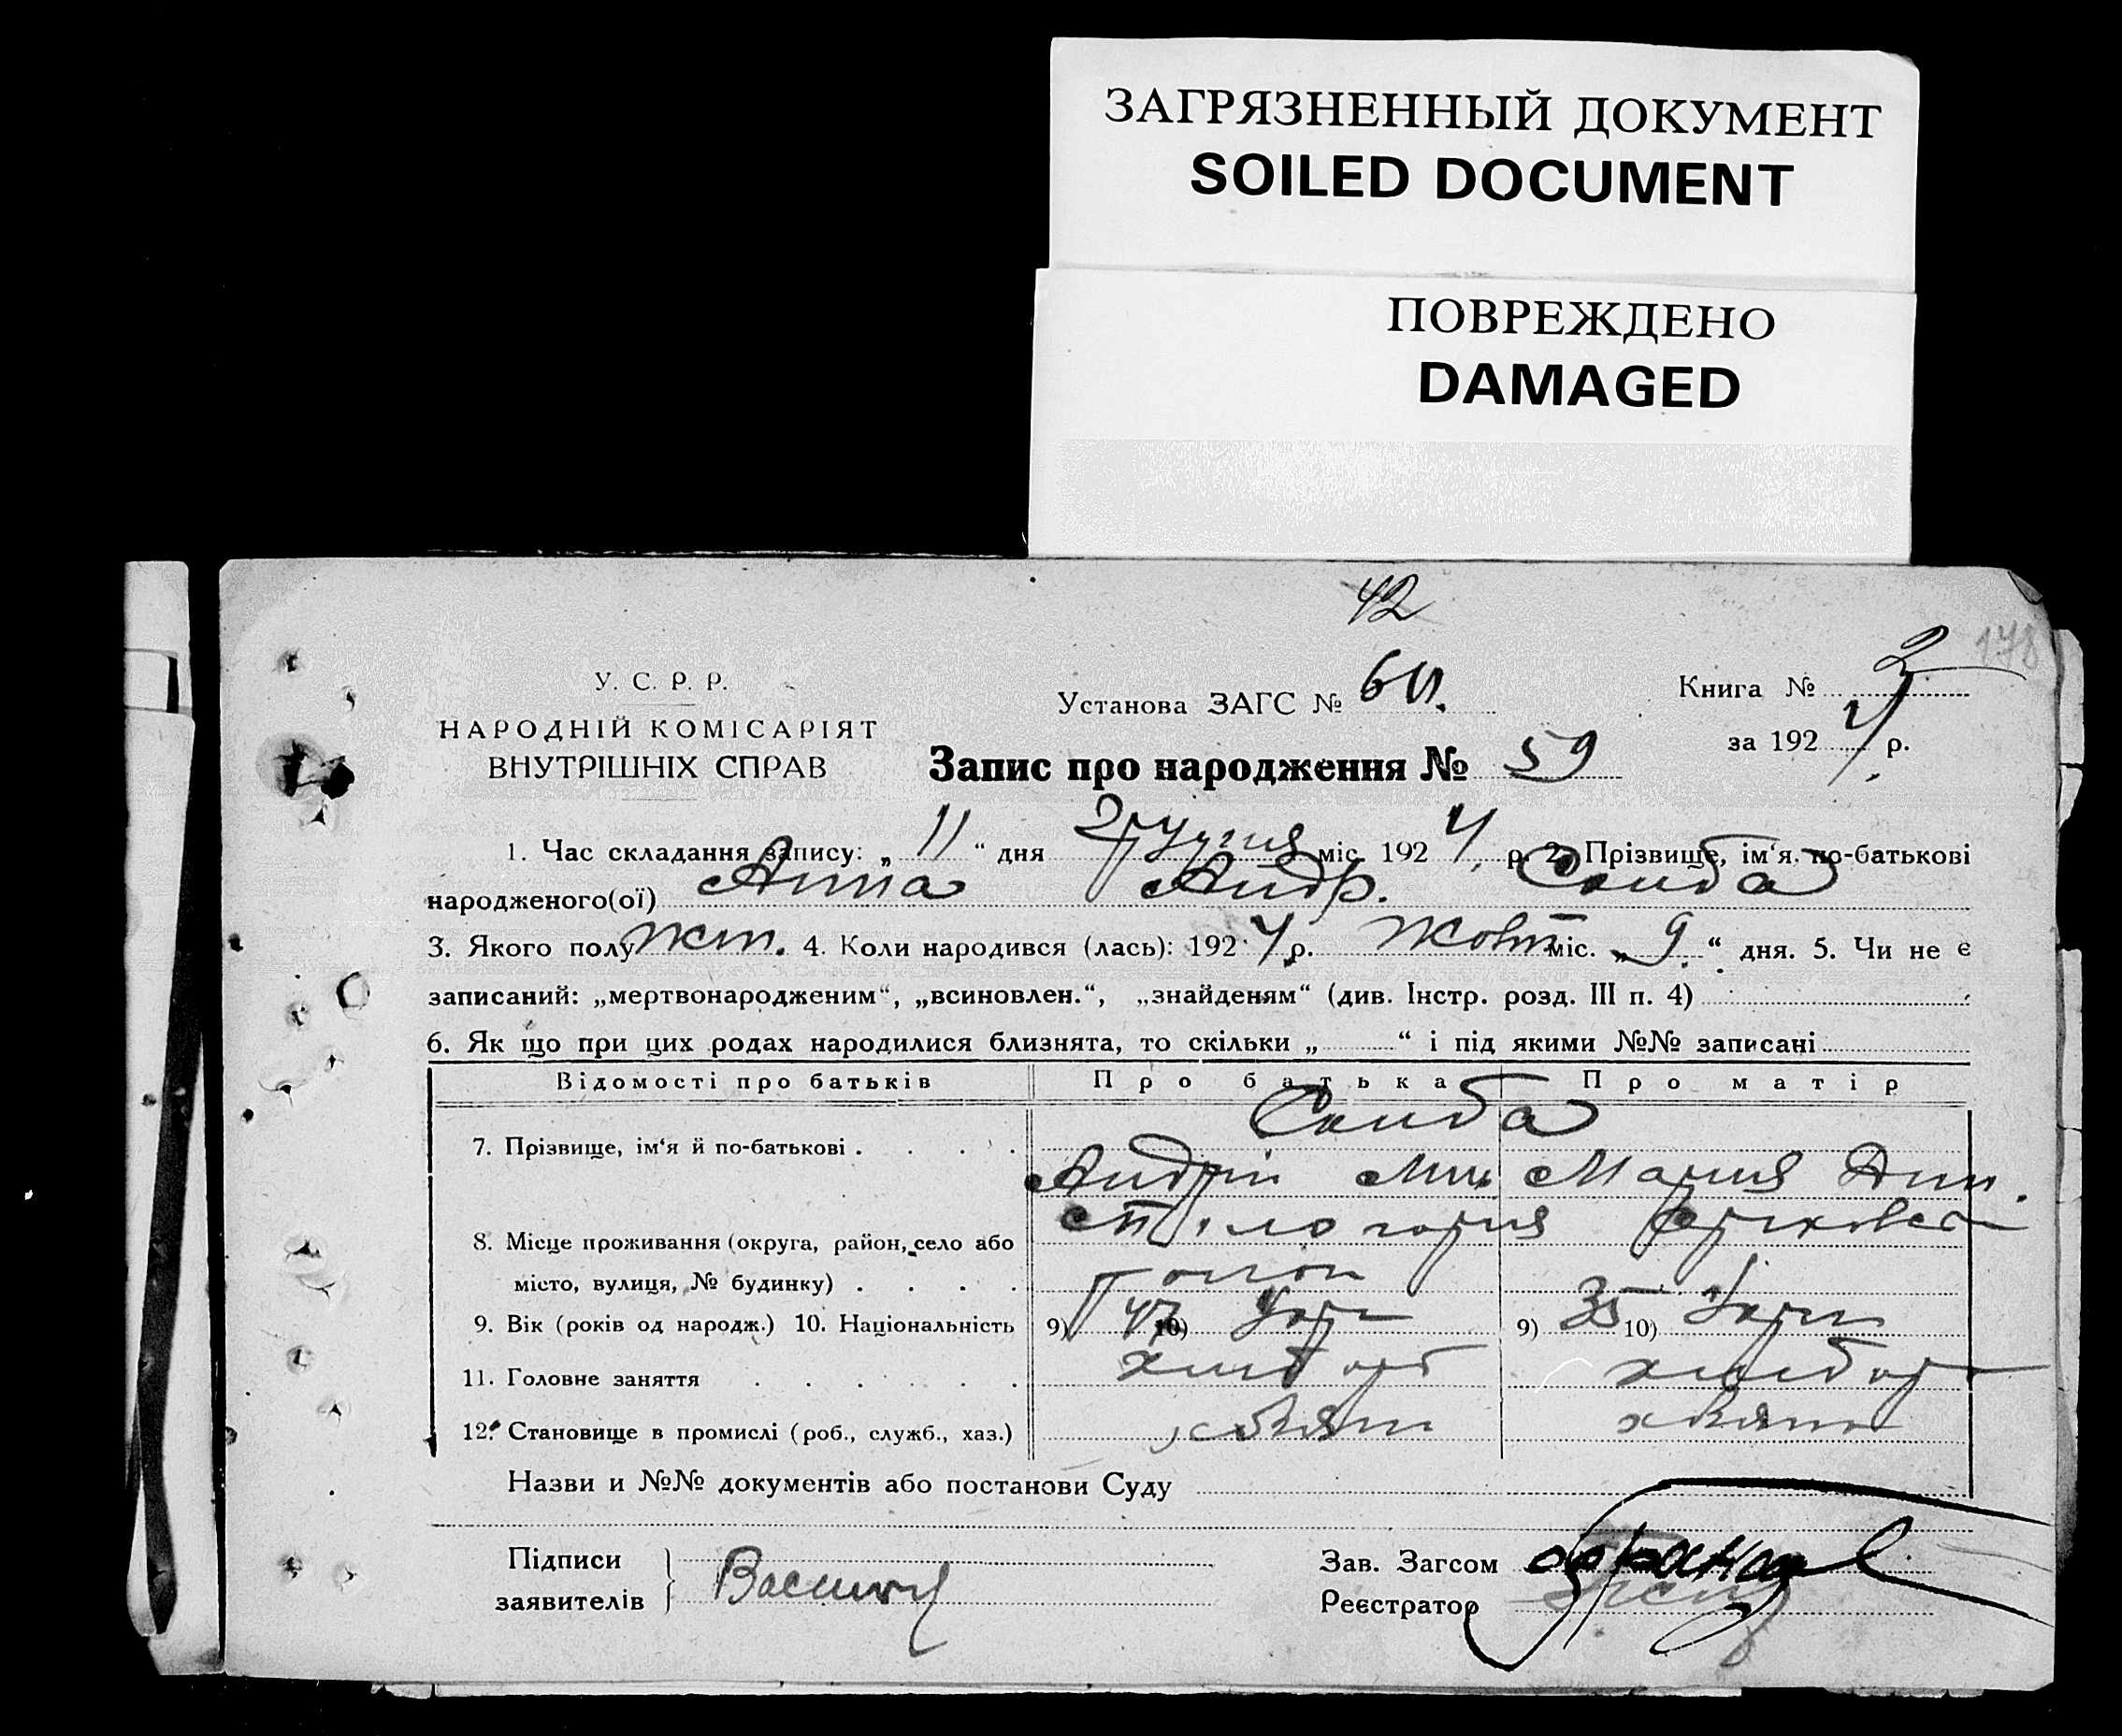 ЗАГРЯЗНЕННЫЙ ДОКУМЕНТ
SOILED DOCUMENT
ПОВРЕЖДЕНО
DAMAGED
42
178
У. С. Р. Р.
НАРОДНІЙ КОМІСАРІЯТ
ВНУТРІШНІХ СПРАВ
Установа ЗАГС №
Книга № 3
за 192 4 р.
Запис про народження № 59
1. Час складання запису: „ 11 “ дня Грудня міс. 192 4 р. 2. Прізвище, ім‘я, по-батькові
народженого(ої) Анна Андр. Скиба
3. Якого полу жін. 4. Коли народився (лась): 192 4 р. Жовт міс. „ 9 “ дня. 5. Чи не є
записаний: „мертвонародженим“, „всиновлен.“, „знайденям“ (див. Інстр. розд. III п. 4)
6. Як що при цих родах народилися близнята, то скільки „ “ і під якими №№ записані
Відомості про батьків Про батька Про матір
Скиба
7. Прізвище, ім‘я й по-батькові
Андрій Мих Мария
8. Місце проживання (округа, район, село або
місто, вулиця, № будинку)
9. Вік (років од народж.) 10. Національність 9) 47 10) Укр 9) 35 10) Укр
11. Головне заняття хлібороб хлібор
12. Становище в промислі (роб., служб., хаз.) хазяін хазяін
Назви и №№ документів або постанови Суду
Підписи
заявителів
Зав. Загсом
Реєстратор